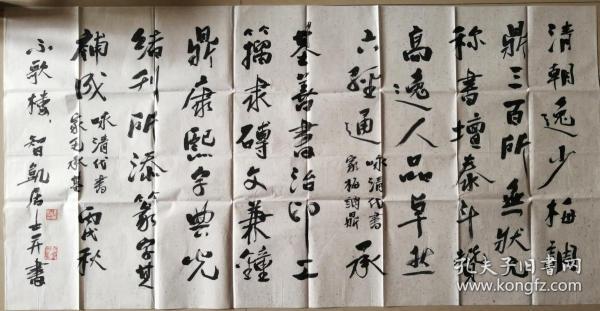 清朝逸少梅调
鼎三百所无状元
称书坛泰斗誉
高逸人品草然
六经通 咏清代书家梅调鼎 承
基善书治印工
籀隶砖文兼钟
鼎康熙字典光
绪刊所添篆字其
补成 咏清代书家毛承基 丙戌秋
不歇楼智凯居士并书
孔夫子旧书网
www.kongfz.com